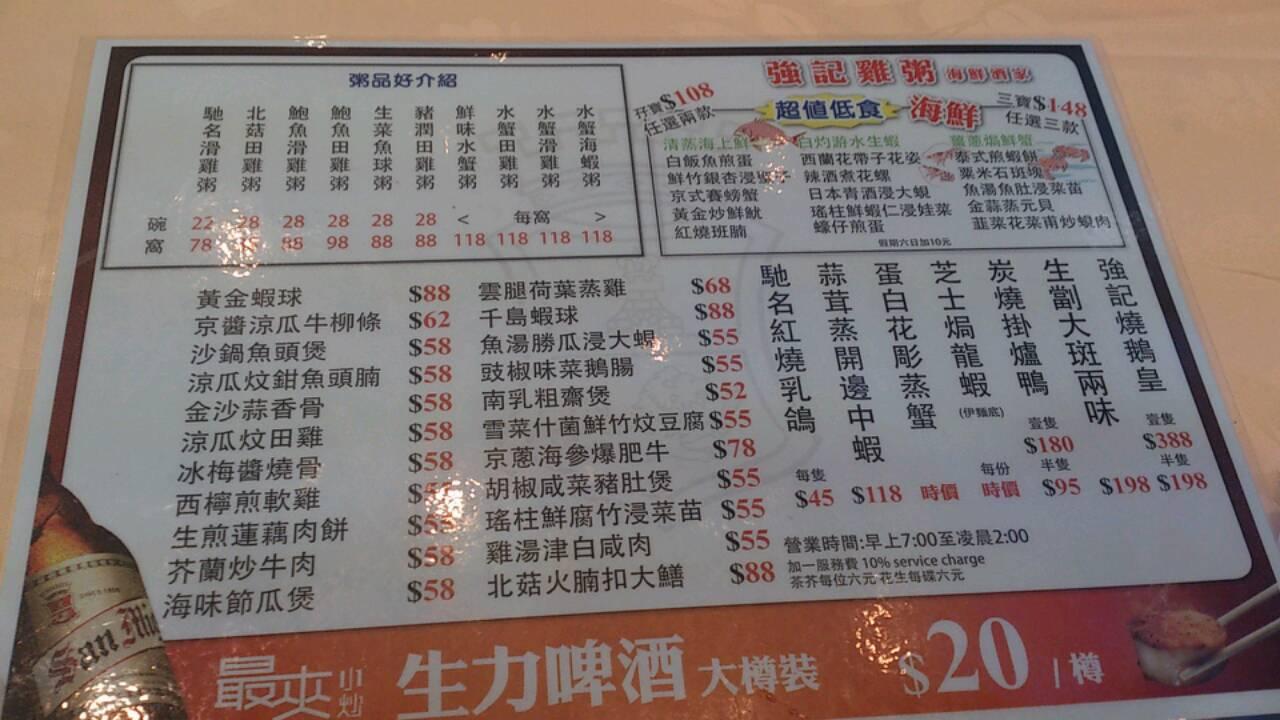 粥品好介紹
馳名滑雞粥
北菇田雞粥
鮑魚滑雞粥
鮑魚田雞粥
生菜魚球粥
豬潤雞粥
鮮味水蟹粥
水蟹田雞粥
水蟹滑雞粥
水蟹海蝦粥
碗 22 28 28 28 28 28 < 每窩 >
窩 78 88 98 88 88 118 118 118 118
強記雞粥 海鮮酒家
孖寶$108 任選兩款
超值低食 海鮮
三寶$148 任選三款
清蒸海上鮮
白飯魚煎蛋
鮮竹銀杏浸
京式賽螃蟹
黃金炒鮮魷
紅燒班腩
白灼游水生蝦
西蘭花帶子花姿
辣酒煮花螺
日本青酒浸大蜆
瑤柱鮮蝦仁浸娃菜
蠔仔煎蛋
薑蔥焗鮮蟹
泰式煎蝦餅
粟米石斑塊
魚湯魚肚浸菜苗
金蒜蒸元貝
韮菜花菜甫炒蜆肉
假期六日加10元
黃金蝦球 $88
京醬涼瓜牛柳條 $62
沙鍋魚頭煲 $58
涼瓜炆鉗魚頭腩 $58
金沙蒜香骨 $58
涼瓜炆田雞 $58
冰梅醬燒骨 $58
西檸煎軟雞
生煎蓮藕肉餅
芥蘭炒牛肉 $58
海味節瓜煲 $58
雲腿荷葉蒸雞 $68
千島蝦球 $88
魚湯勝瓜浸大蜆 $55
豉椒味菜鵝腸 $55
南乳粗齋煲 $52
雪菜什菌鮮竹炆豆腐 $55
京蔥海參爆肥牛 $78
胡椒咸菜豬肚煲 $55
瑤柱鮮腐竹浸菜苗 $55
雞湯津白咸肉 $55
北菇火腩扣大鱔 $88
馳名紅燒乳鴿 每隻 $45
蒜茸蒸開邊中蝦 $118
蛋白花彫蒸蟹 時價
芝士焗龍蝦 (伊麵底) 每份 時價
炭燒掛爐鴨 壹隻 $180 半隻 $95
生劏大斑兩味 $198
強記燒鵝皇 壹隻 $388 半隻 $198
營業時間:早上7:00至凌晨2:00
加一服務費 10% service charge
茶芥每位六元 花生每碟六元
San Mig
最夾小炒 生力啤酒 大樽裝 $20 / 樽